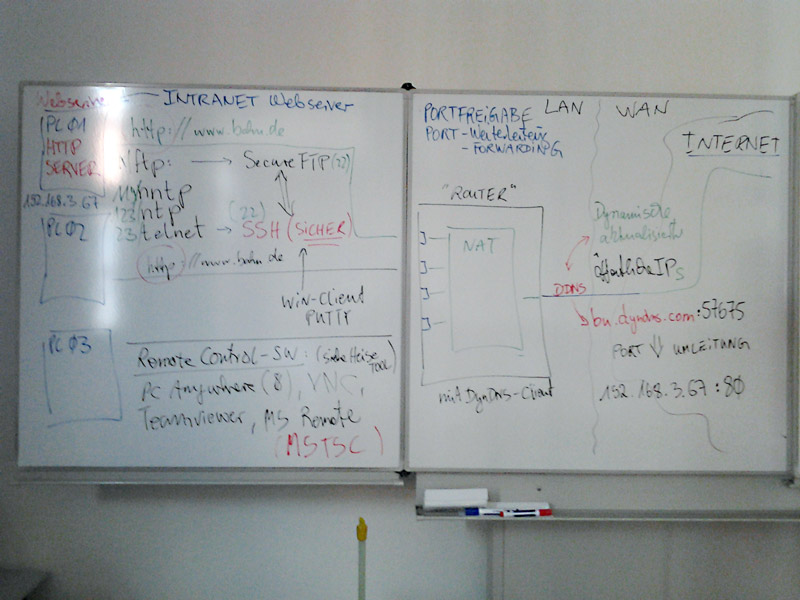 Webserver ← INTRANET Webserver
PC Ø1
HTTP
SERVER
http://www.bahn.de
ftp: → Secure FTP (22)
119/nntp
192.168.3.67
123/ntp
23/telnet → SSH (SICHER)
(22)
PC Ø2
http://www.bahn.de
WIN-Client
PUTTY
PC Ø3
REMOTE CONTROL-SW: (siehe Heise
TOOL)
PC Anywhere (8), VNC,
Teamviewer, MS Remote
(MSTSC)
PORTFREIGABE
PORT-Weiterleitung
-FORWARDING
LAN
WAN
INTERNET
"ROUTER"
NAT
mit DynDNS-Client
Dynamische
aktualisierte
öffentliche IPs
DDNS
bu.dyndns.com:57675
PORT ⇓ UMLEITUNG
192.168.3.67:80